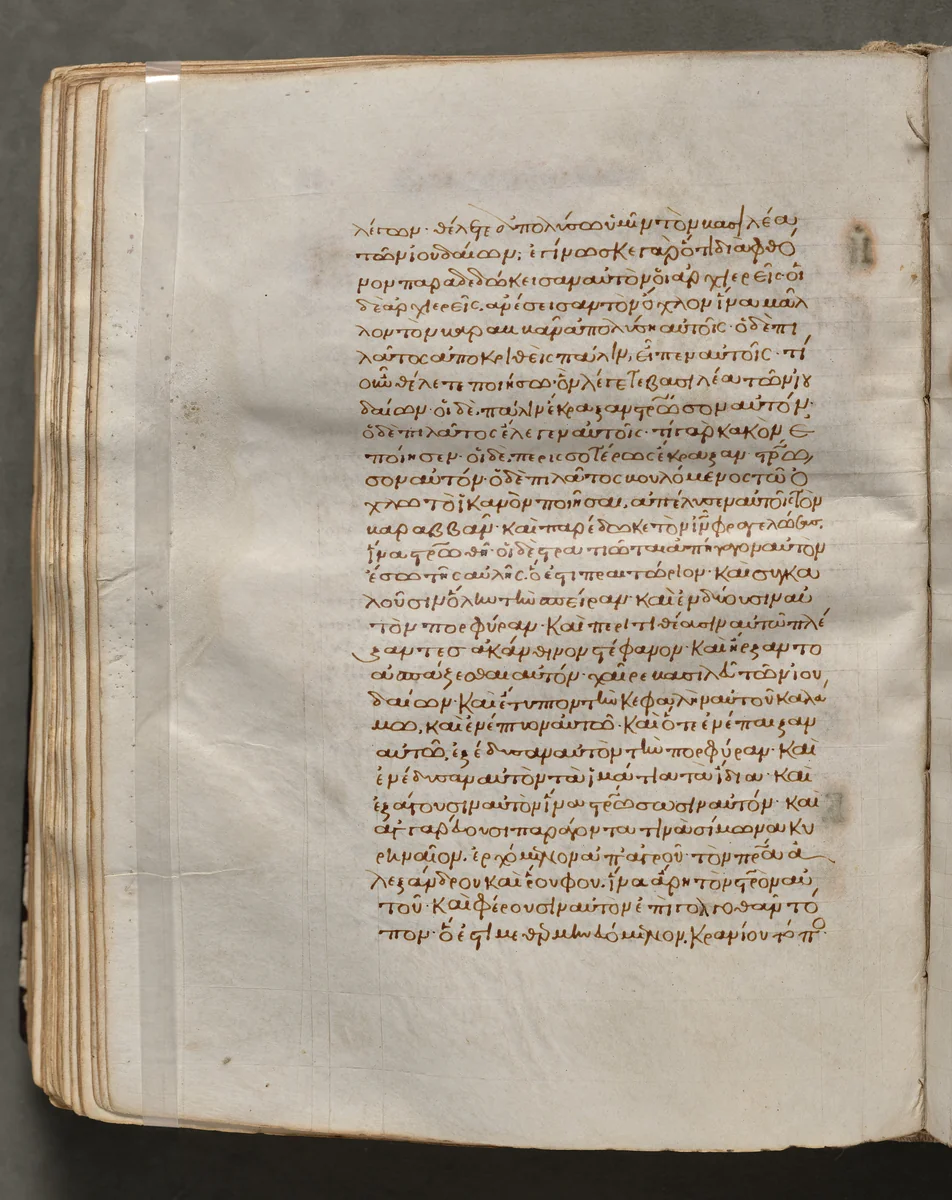 λέγων· θέλετε ἀπολύσω ὑμῖν τὸν βασιλέα
τῶν ἰουδαίων; ἐγίνωσκε γὰρ ὅτι διὰ φθό
νον παραδεδώκεισαν αὐτὸν οἱ ἀρχιερεῖς· οἱ
δὲ ἀρχιερεῖς, ἀνέσεισαν τὸν ὄχλον ἵνα μᾶλ
λον τὸν βαραββᾶν ἀπολύση αὐτοῖς· ὁ δὲ πι
λᾶτος ἀποκριθεὶς πάλιν, εἶπεν αὐτοῖς· τί
οὖν θέλετε ποιήσω ὃν λέγετε βασιλέα τῶν ἰου
δαίων· οἱ δὲ πάλιν ἔκραξαν στρωσον αὐτόν·
ὁ δὲ πιλᾶτος ἔλεγεν αὐτοῖς· τί γὰρ κακὸν ἐ
ποίησεν· οἱ δὲ περισσοτέρως ἔκραξαν στρω
σον αὐτόν· ὁ δὲ πιλᾶτος βουλόμενος τῶ ὄ
χλω τὸ ἱκανὸν ποιῆσαι, ἀπέλυσεν αὐτοῖς τὸν
βαραββᾶν· καὶ παρέδωκε τὸν ιν φραγελώσας,
ἵνα στρωθῆ· οἱ δὲ στρατιῶται ἀπήγαγον αὐτὸν
ἔσω τῆς αὐλῆς· ὅ ἐστι πραιτώριον· καὶ συγκα
λοῦσιν ὅλην τὴν σπεῖραν· καὶ ἐνδύουσιν αὐ
τὸν πορφύραν· καὶ περιτιθέασιν αὐτῶ πλέ
ξαντες ἀκάνθινον στέφανον· καὶ ἤρξαντο
ἀσπάζεσθαι αὐτόν· χαῖρε βασιλεῦ τῶν ἰου
δαίων· καὶ ἔτυπτον τὴν κεφαλὴν αὐτοῦ καλά
μω, καὶ ἐνέπτυον αὐτῶ· καὶ ὅτε ἐνέπαιξαν
αὐτῶ, ἐξέδυσαν αὐτὸν τὴν πορφύραν· καὶ
ἐνέδυσαν αὐτὸν τὰ ἱμάτια τὰ ἴδια· καὶ
ἐξάγουσιν αὐτὸν ἵνα στρωσωσιν αὐτόν· καὶ
ἀγγαρεύουσι παράγοντα τινὰ σίμωνα κυ
ρηναῖον· ἐρχόμενον ἀπ' ἀγροῦ· τὸν πρα ἀ
λεξάνδρου καὶ ῥούφου, ἵνα ἄρη τὸν στρον αὐ
τοῦ· καὶ φέρουσιν αὐτὸν ἐπὶ γολγοθᾶν τό
πον· ὅ ἐστι μεθερμηνευόμενον, κρανίου τόπο